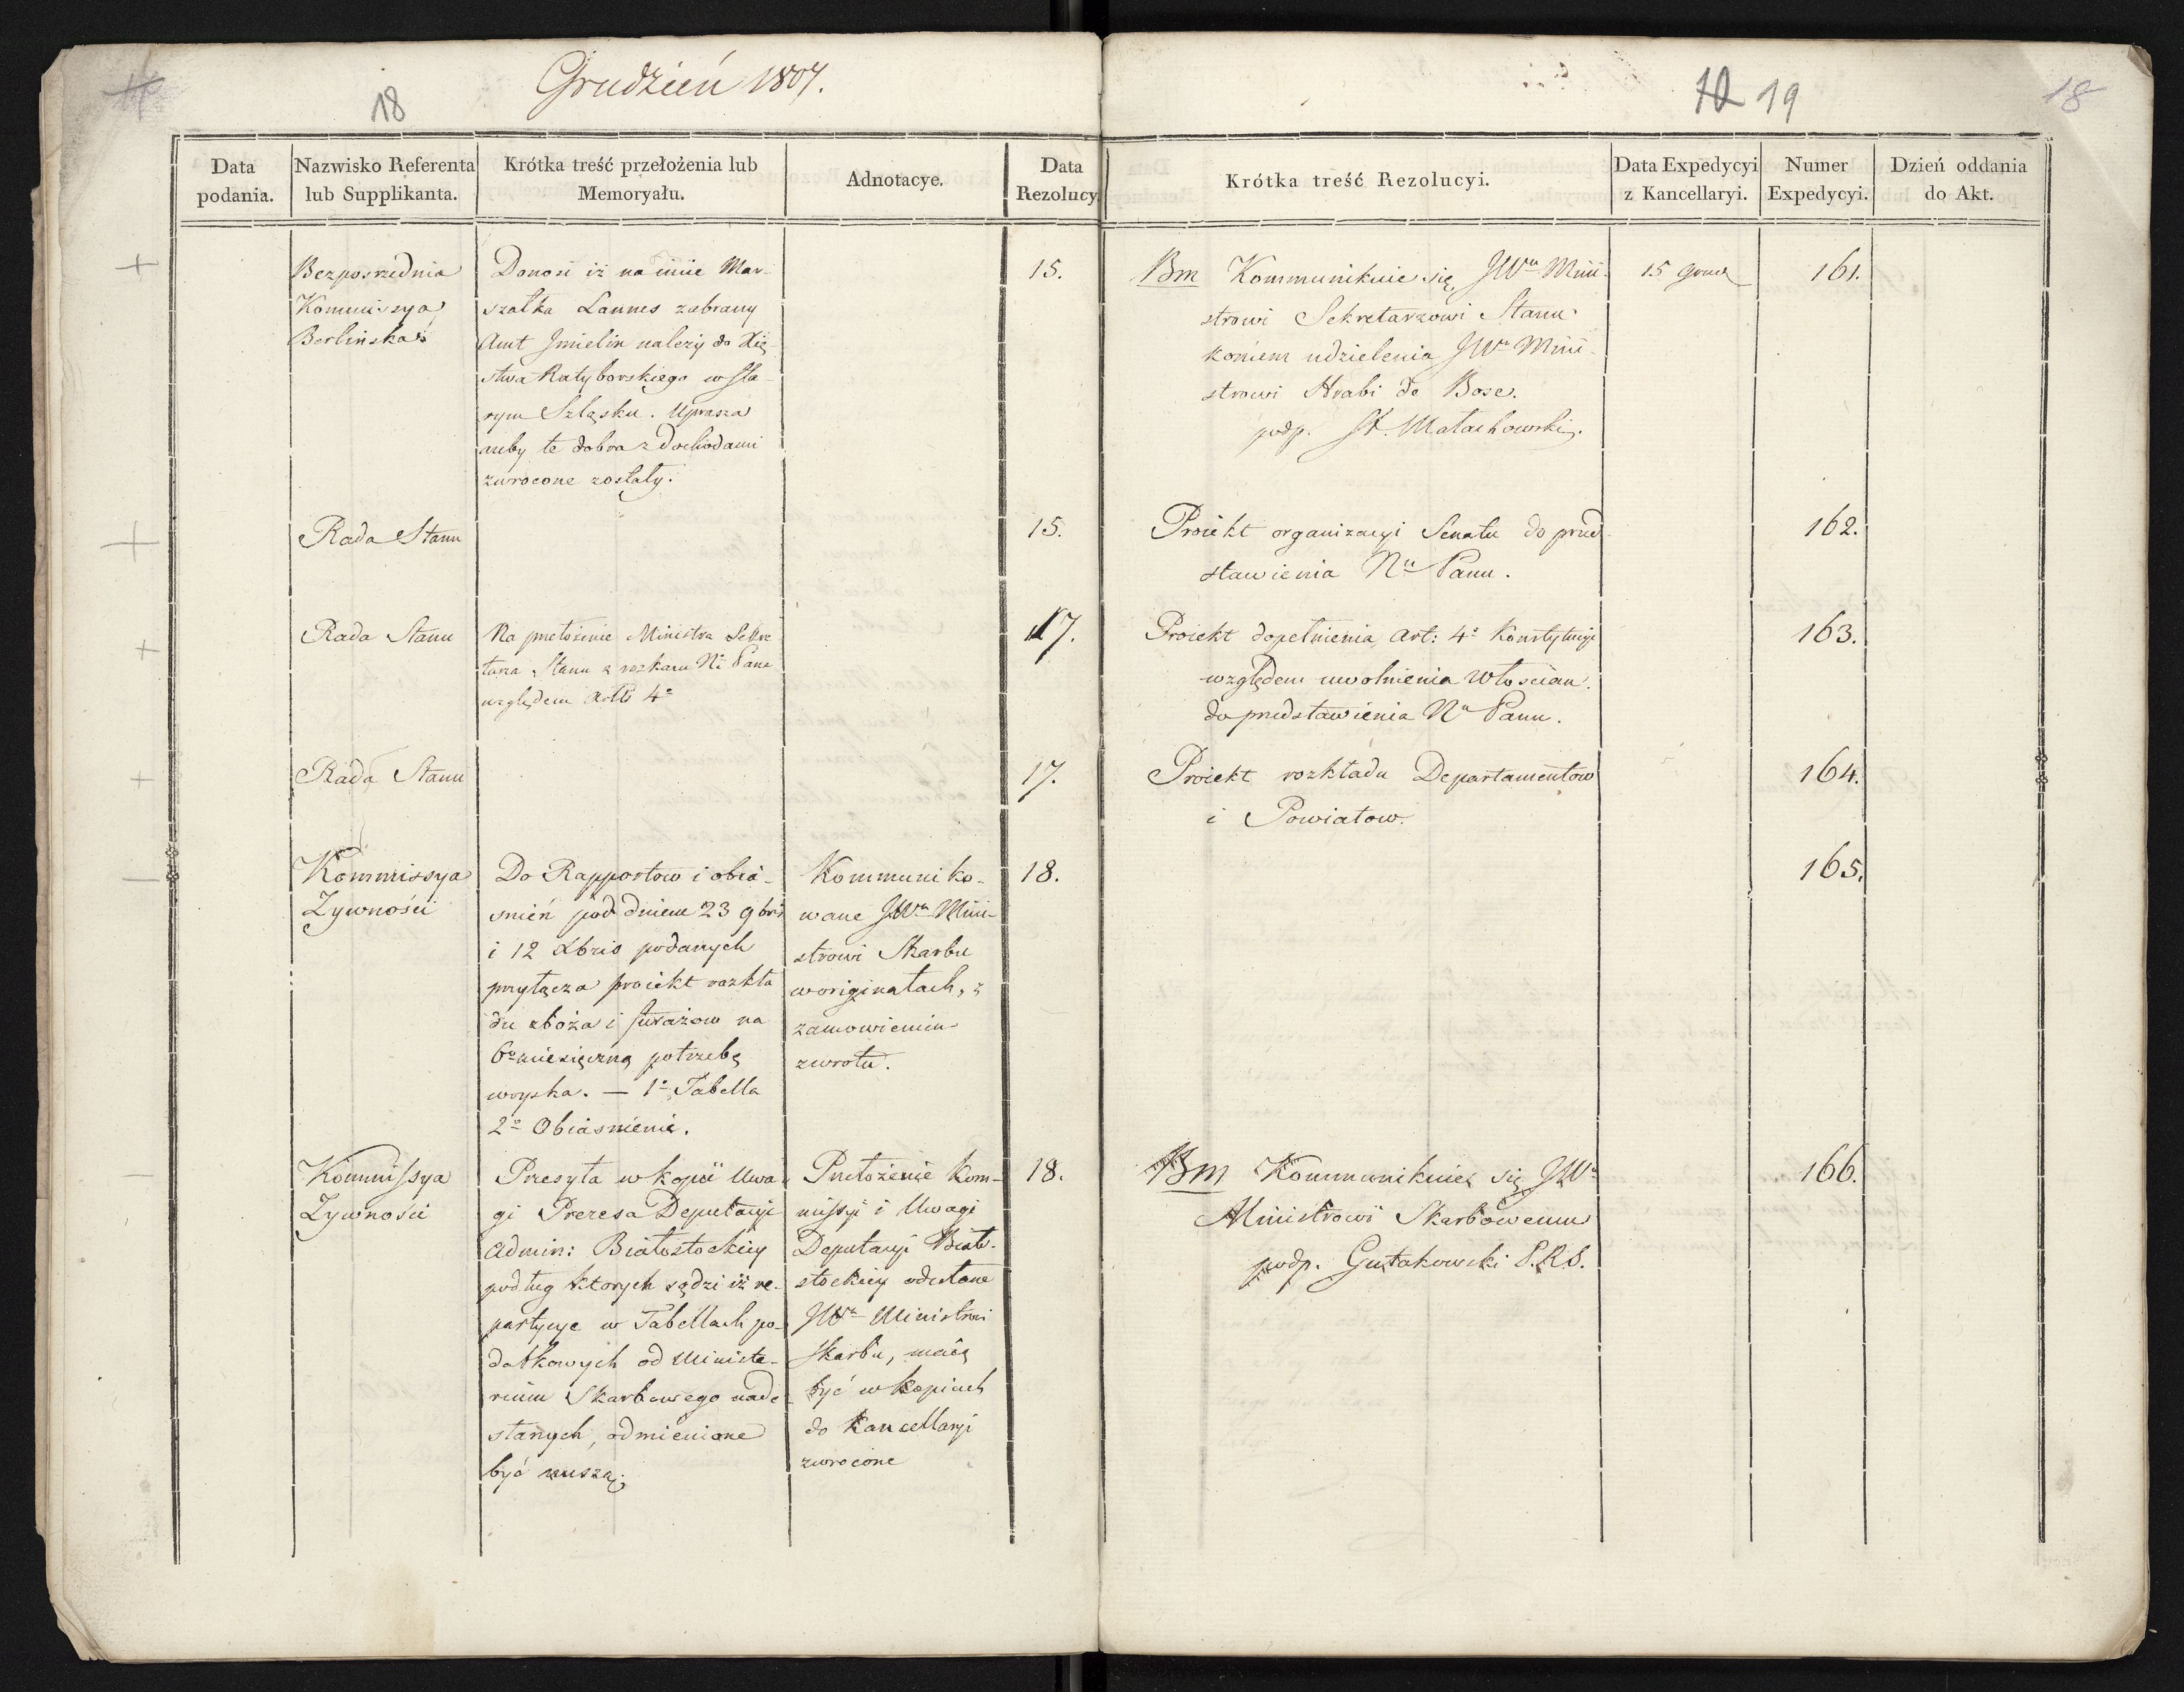 18
Grudzień 1807.
19
18
Data podania.
Nazwisko Referenta lub Supplikanta.
Krótka treść przełożenia lub Memoryału.
Adnotacye.
Data Rezolucyi
Krótka treść Rezolucyi.
Data Expedycyi z Kancellaryi.
Numer Expedycyi.
Dzień oddania do Akt.
Bezposrzednia
Kommissya
Berlińska
Donosi iż na imie Mar-
szałka Lannes zabrany
Amt Jmielin należy do Xię-
stwa Ratyborskiego w sta-
rym Szląsku. Uprasza
aby te dobra z dochodami
zwrocone zostały.
15.
Bm Kommunikuie się JWu Mini-
strowi Sekretarzowi Stanu
końcem udzielenia JWu Mini-
strowi Hrabi de Bose.
podp. St. Małachowski.
15 Grud
161.
Rada Stanu
15.
Proiekt organizacyi Senatu do przed-
stawienia Nu Panu.
162.
Rada Stanu
Na przełożenie Ministra Sekre
tarza Stanu z rozkazu No Pana
względem Artłu 4o
17.
Proiekt dopełnienia Art: 4o Konstytucyi
względem uwolnienia Włościan.
do przedstawienia Nu Panu.
163.
Rada Stanu
17.
Proiekt rozkładu Departamentow
i Powiatow.
164.
Kommissya
Zywności
Do Rapportow i obia-
snień pod dniem 23 9bris
i 12 Xbris podanych
przyłącza proiekt rozkła
du zboża i furażow na
6o miesięczną potrzebę
woyska. — 1o Tabella
2o Obiasnienie.
Kommuniko-
wane JWu Mini-
strowi Skarbu
w originałach, z
zamowieniem
zwrotu.
18.
165.
Kommissya
Zywności
Przesyła w kopii Uwa
gi Prezesa Deputacyi
Admin: Białostockiey
podług ktorych sądzi iż re-
partycye w Tabellach po-
datkowych od Ministe-
rium Skarbowego nade
słanych, odmienione
być muszą.
Przełożenie Kom-
missyi i Uwagi
Deputacyi Biało-
stockiey odesłane
JWu Ministrowi
Skarbu, maią
być w kopiach
do Kancellaryi
zwrocone
18.
Bm Kommunikuie się JWu
Ministrowi Skarbowemu
podp. Gutakowski P.R.S.
166.